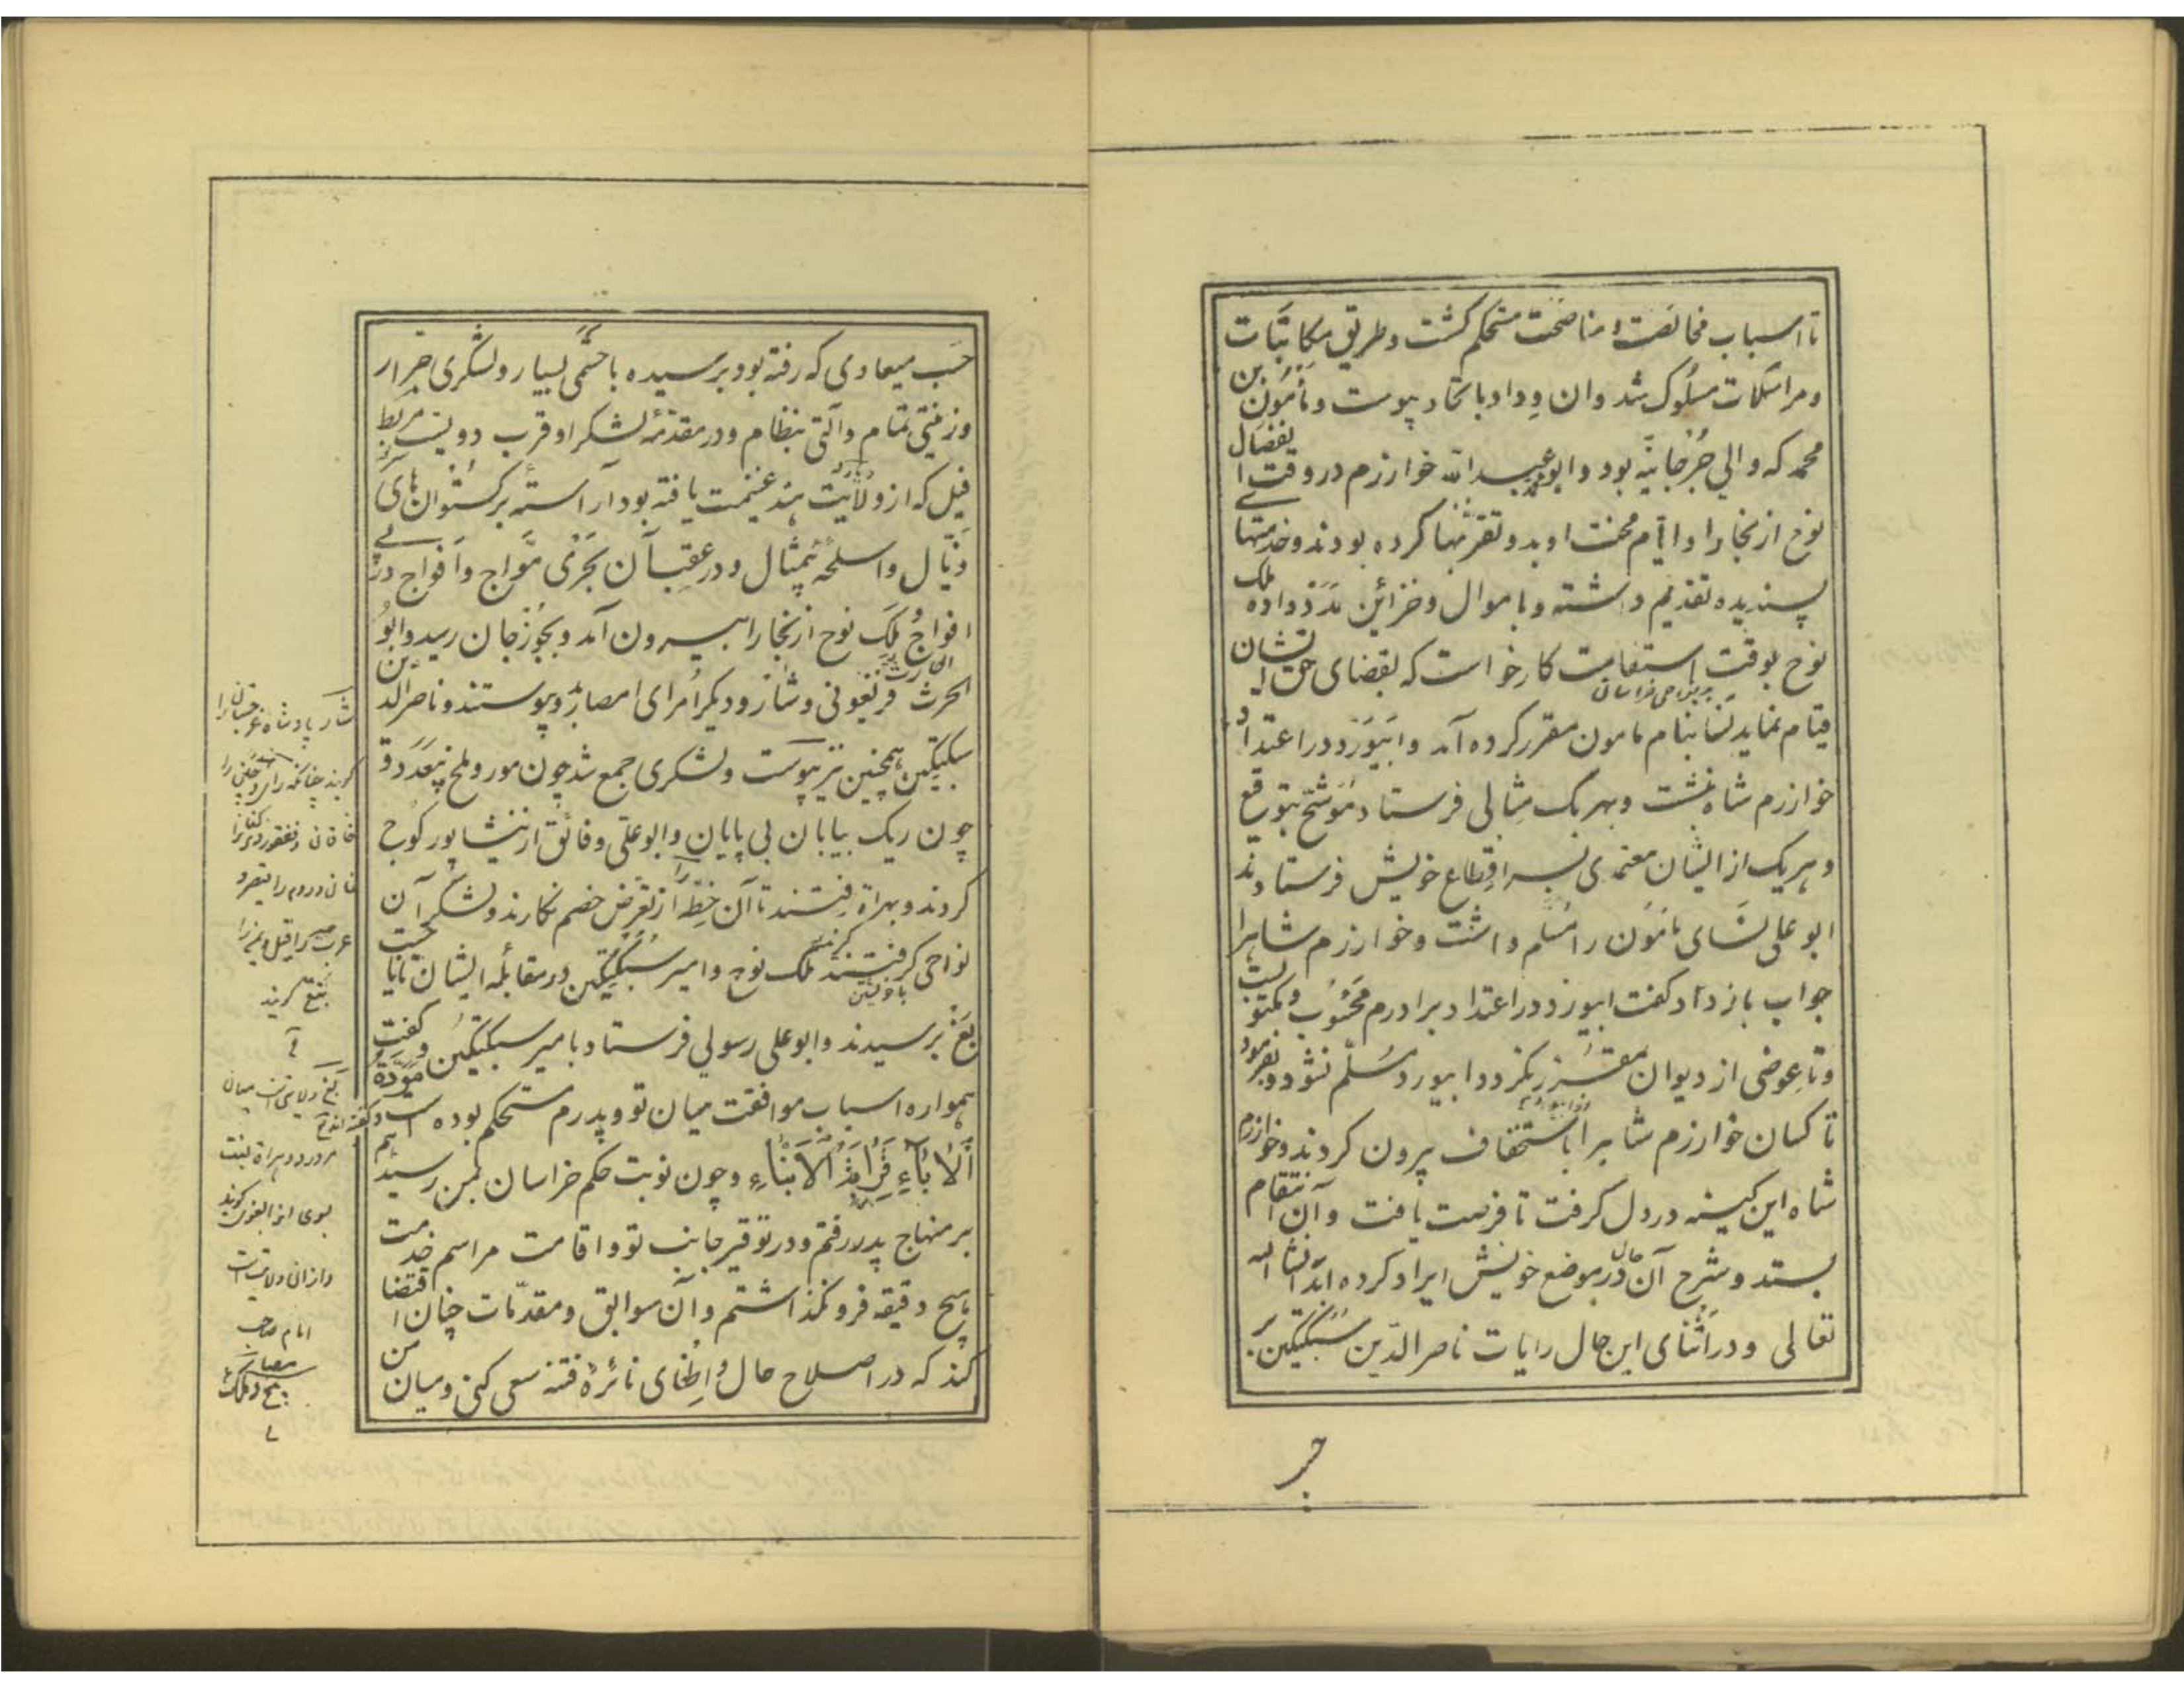 تا اسباب مخالصت و مناصحت مستحکم گشت و طریق مکاتبات
و مراسلات مسلوک شد و ان وداد باتحاد پیوست و مأمون بن
محمد که والی جرجانیّه بود و ابو عبد الله خوارزم در وقت انفصال
نوح از بخارا و ایّام محنت او بدو تقرّبها کرده بودند و خدمتهای
پسندیده تقدیم داشته و باموال و خزائن مدد داده ملک
نوح بوقت استقامت کار خواست که بقضای حق ایشان
قیام نماید نسا بنام مامون مقرر کرده آمد و ابیورد در اعتداد
خوارزم شاه نبشت و بهر یک مثالی فرستاد موشّح بتوقیع
و هریک از ایشان معتمدی بسر اقطاع خویش فرستادند
ابو علی نسای مامون را مسلم داشت و خوارزم شاهرا
جواب باز داد و گفت ابیورد در اعتداد برادرم محسوب و مکتوبست
و تا عوضی از دیوان مقرّر نگردد ابیورد مسلّم نشود و بفرمود
تا کسان خوارزم شاهرا باستخفاف بیرون کردند و خوارزم
شاه این کینه در دل گرفت تا فرصت یافت و آن انتقام
بستد و شرح آن حال در موضع خویش ایراد کرده آید انشا الله
تعالی و در اثنای این حال رایات ناصر الدّین سبکتکین بر
حسب
حسب میعادی که رفته بود برسیده با حشمی بسیار و لشکری جرار
و زینتی تمام و آلتی بنظام و در مقدّمه لشکر او قرب دویست مربط
فیل که از ولایت هند غنیمت یافته بود آراسته برگستوان های
و اسلحه بیمثال و در عقب آن بحری موّاج و افواج در پی
افواج ملک نوح از بخارا بیرون آمد و بجوزجان رسید و ابو
الحارث
الحرث فریغونی و شار و دیگر امرای امصار بدو پیوستند و ناصر الدّین
سبکتکین همچنین نیز پیوست و لشکری جمع شد چون مور و ملخ بیعدد و
چون ریگ بیابان بی پایان و ابو علی و فائق از نیشابور کوچ
کردند و بهراة رفتند تا آن خطّه را از تعرّض خصم نگارند و لشکر آن
نواحی گرفتند ملک نوح و امیر سبکتکین در مقابله ایشان بناحیت
بغ برسیدند و ابو علی رسولی فرستاد بامیر سبکتکین و گفت
همواره اسباب موافقت میان تو و پدرم مستحکم بوده است و گفته اند مودّة
الآباءِ قرابة الابناءِ و چون نوبت حکم خراسان بمن رسید هم
بر منهاج پدر رفتم و در توقیر جانب تو و اقامت مراسم خدمت
هیچ دقیقه فرو نگذاشتم و آن سوابق و مقدّمات چنان اقتضا
کند که در اصلاح حال و اطفای نائره فتنه سعی کنی و میان من
شار پادشاه غرجستان را
گویند چنانکه
خاقان و فغفور
و روم را قیصر و
عرب
تبع گویند
بغ ولایتی است میان
مرورود و هراة نسبت
بوی